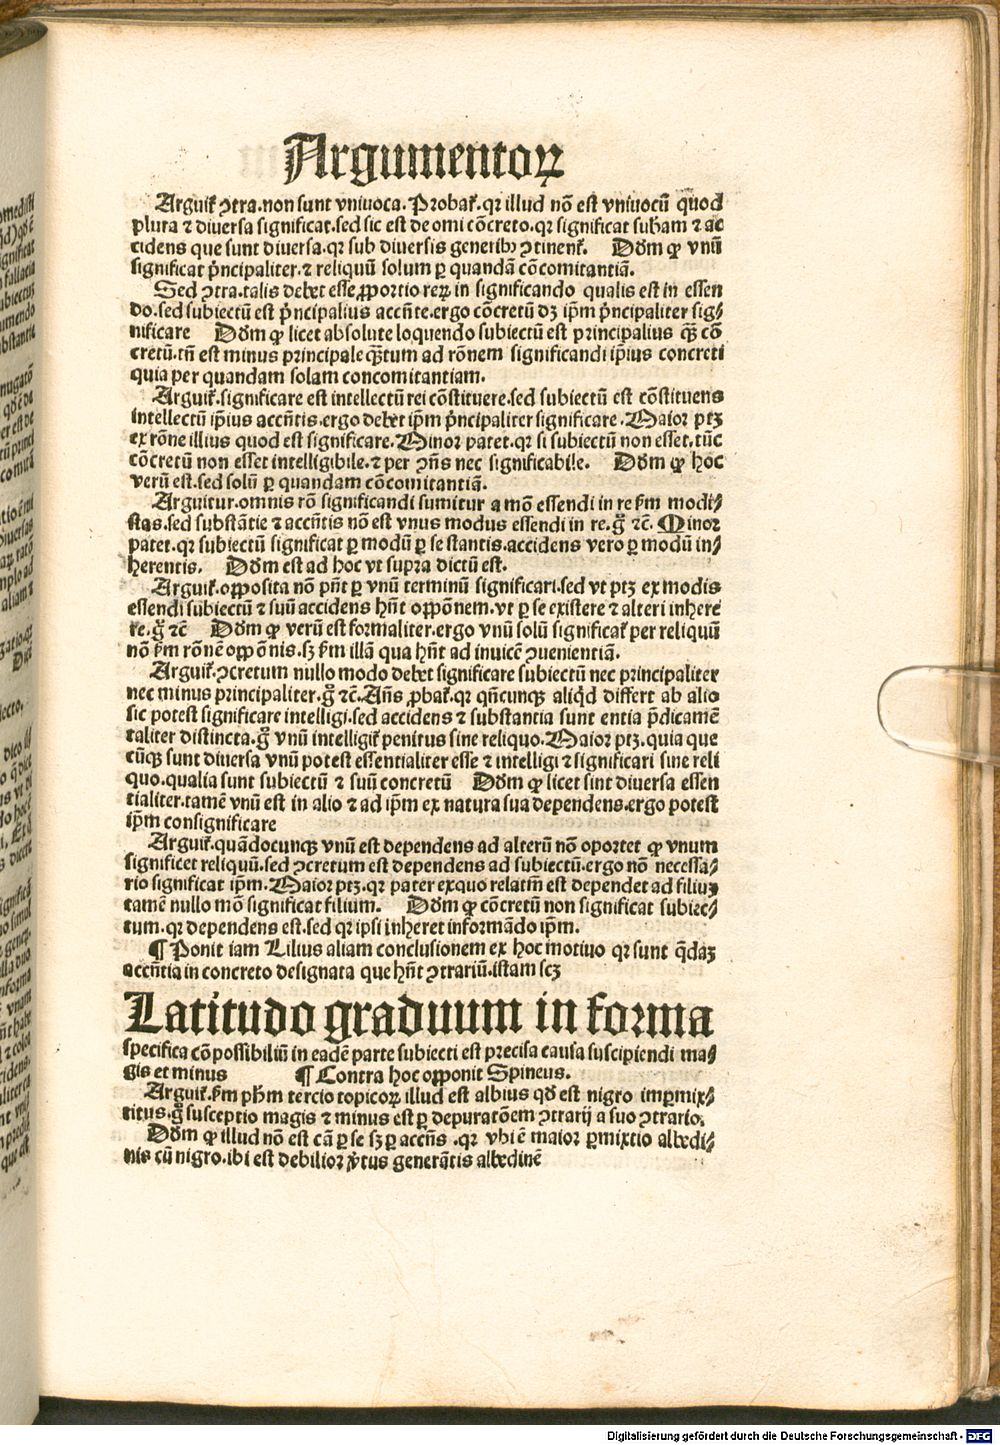 Argumentoꝝ
Arguiť ꝯtra.non sunt vniuoca. Probať.qꝛ illud nō est vniuocū quod
plura ⁊ diuersa significat.sed sic est de omi cōcreto.qꝛ significat subam ⁊ ac
cidens que sunt diuersa.qꝛ sub diuersis generibꝫ ꝯtinenť. Dōm ꝙ vnū
significat pͥncipaliter.⁊ reliquū solum ꝑ quandā cōcomitantiā.
Sed ꝯtra.talis debet esse ꝓportio reꝝ in significando qualis est in essen
do.sed subiectū est pͥncipalius accn̄te.ergo cōcretū dꝫ ip̄m pͥncipaliter sig⸗
nificare Dōm ꝙ licet absolute loquendo subiectū est principalius qͣꝫ cō
cretū.tn̄ est minus principale qͣꝫtum ad rōnem significandi ip̄ius concreti
quia per quandam solam concomitantiam.
Arguiť.significare est intellectū rei cōstituere.sed subiectū est cōstituens
intellectū ip̄ius accn̄tis.ergo debet ip̄m pͥncipaliter significare. Maior ptꝫ
ex rōne illius quod est significare. Minor patet.qꝛ si subiectū non esset.tūc
cōcretū non esset intelligibile.⁊ per ꝯn̄s nec significabile. Dōm ꝙ hoc
verū est.sed solū ꝑ quandam cōcomitantiā.
Arguitur.omnis rō significandi sumitur a mō essendi in re ẜm modi⸗
stas.sed substātie ⁊ accn̄tis nō est vnus modus essendi in re.gͦ ⁊c̄. Minor
patet.qꝛ subiectū significat ꝑ modū ꝑ se stantis.accidens vero ꝑ modū in⸗
herentis. Dōm est ad hoc vt supra dictū est.
Arguiť.opposita nō pn̄t ꝑ vnū terminū significari.sed vt ptꝫ ex modis
essendi subiectū ⁊ suū accidens hn̄t oppōnem.vt ꝑ se existere ⁊ alteri inhere
re.gͦ ⁊c̄ Dōm ꝙ verū est formaliter.ergo vnū solū significať per reliquū
nō ẜm rōnē oppōnis.sꝫ ẜm illā qua hn̄t ad inuicē ꝯuenientiā.
Arguiť.ꝯcretum nullo modo debet significare subiectū nec principaliter
nec minus principaliter.gͦ ⁊c̄. An̄s ꝓbať.qꝛ qn̄cunqꝫ aliqͥd differt ab alio
sic potest significare intelligi.sed accidens ⁊ substantia sunt entia p̄dicamē
taliter distincta.gͦ vnū intelligiť penitus sine reliquo. Maior ptꝫ.quia que
cūqꝫ sunt diuersa vnū potest essentialiter esse ⁊ intelligi ⁊ significari sine reli
quo.qualia sunt subiectū ⁊ suū concretū Dōm ꝙ licet sint diuersa essen
tialiter.tamē vnū est in alio ⁊ ad ip̄m ex natura sua dependens.ergo potest
ip̄m consignificare
Arguiť.quādocunqꝫ vnū est dependens ad alterū nō oportet ꝙ vnum
significet reliquū.sed ꝯcretum est dependens ad subiectū.ergo nō necessa⸗
rio significat ip̄m. Maior ptꝫ.qꝛ pater exquo relatm̄ est dependet ad filiuꝫ
tamē nullo mō significat filium. Dōm ꝙ cōcretū non significat subiec⸗
tum.qꝛ dependens est.sed qꝛ ipsi inheret informādo ip̄m.
¶ Ponit iam Lilius aliam conclusionem ex hoc motiuo qꝛ sunt qͣdaꝫ
accn̄tia in concreto designata que hn̄t ꝯtrariū.istam scꝫ
Latitudo graduum in forma
specifica cōpossibiliū in eadē parte subiecti est precisa causa suscipiendi ma⸗
gis et minus ¶ Contra hoc opponit Spineus.
Arguiť.ẜm ph̄m tercio topicoꝝ illud est albius qd̄ est nigro imꝑmix⸗
titus.gͦ susceptio magis ⁊ minus est ꝑ depuratōem ꝯtrarij a suo ꝯtrario.
Dōm ꝙ illud nō est cā ꝑ se sꝫ ꝑ accn̄s .qꝛ vbi ē maior ꝑmixtio albedi⸗
nis cū nigro.ibi est debilior v̓tus generātis albedinē
Digitalisierung gefördert durch die Deutsche Forschungsgemeinschaft - DFG